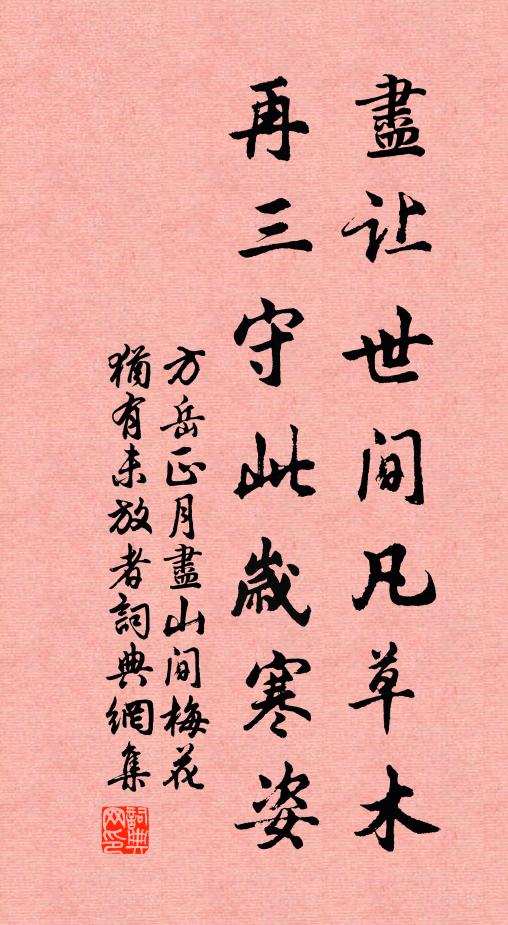 盡让世间凡草木
再三守此歲寒姿
方岳正月盡山间梅花
猶有未放者詞典網集
詞典网印